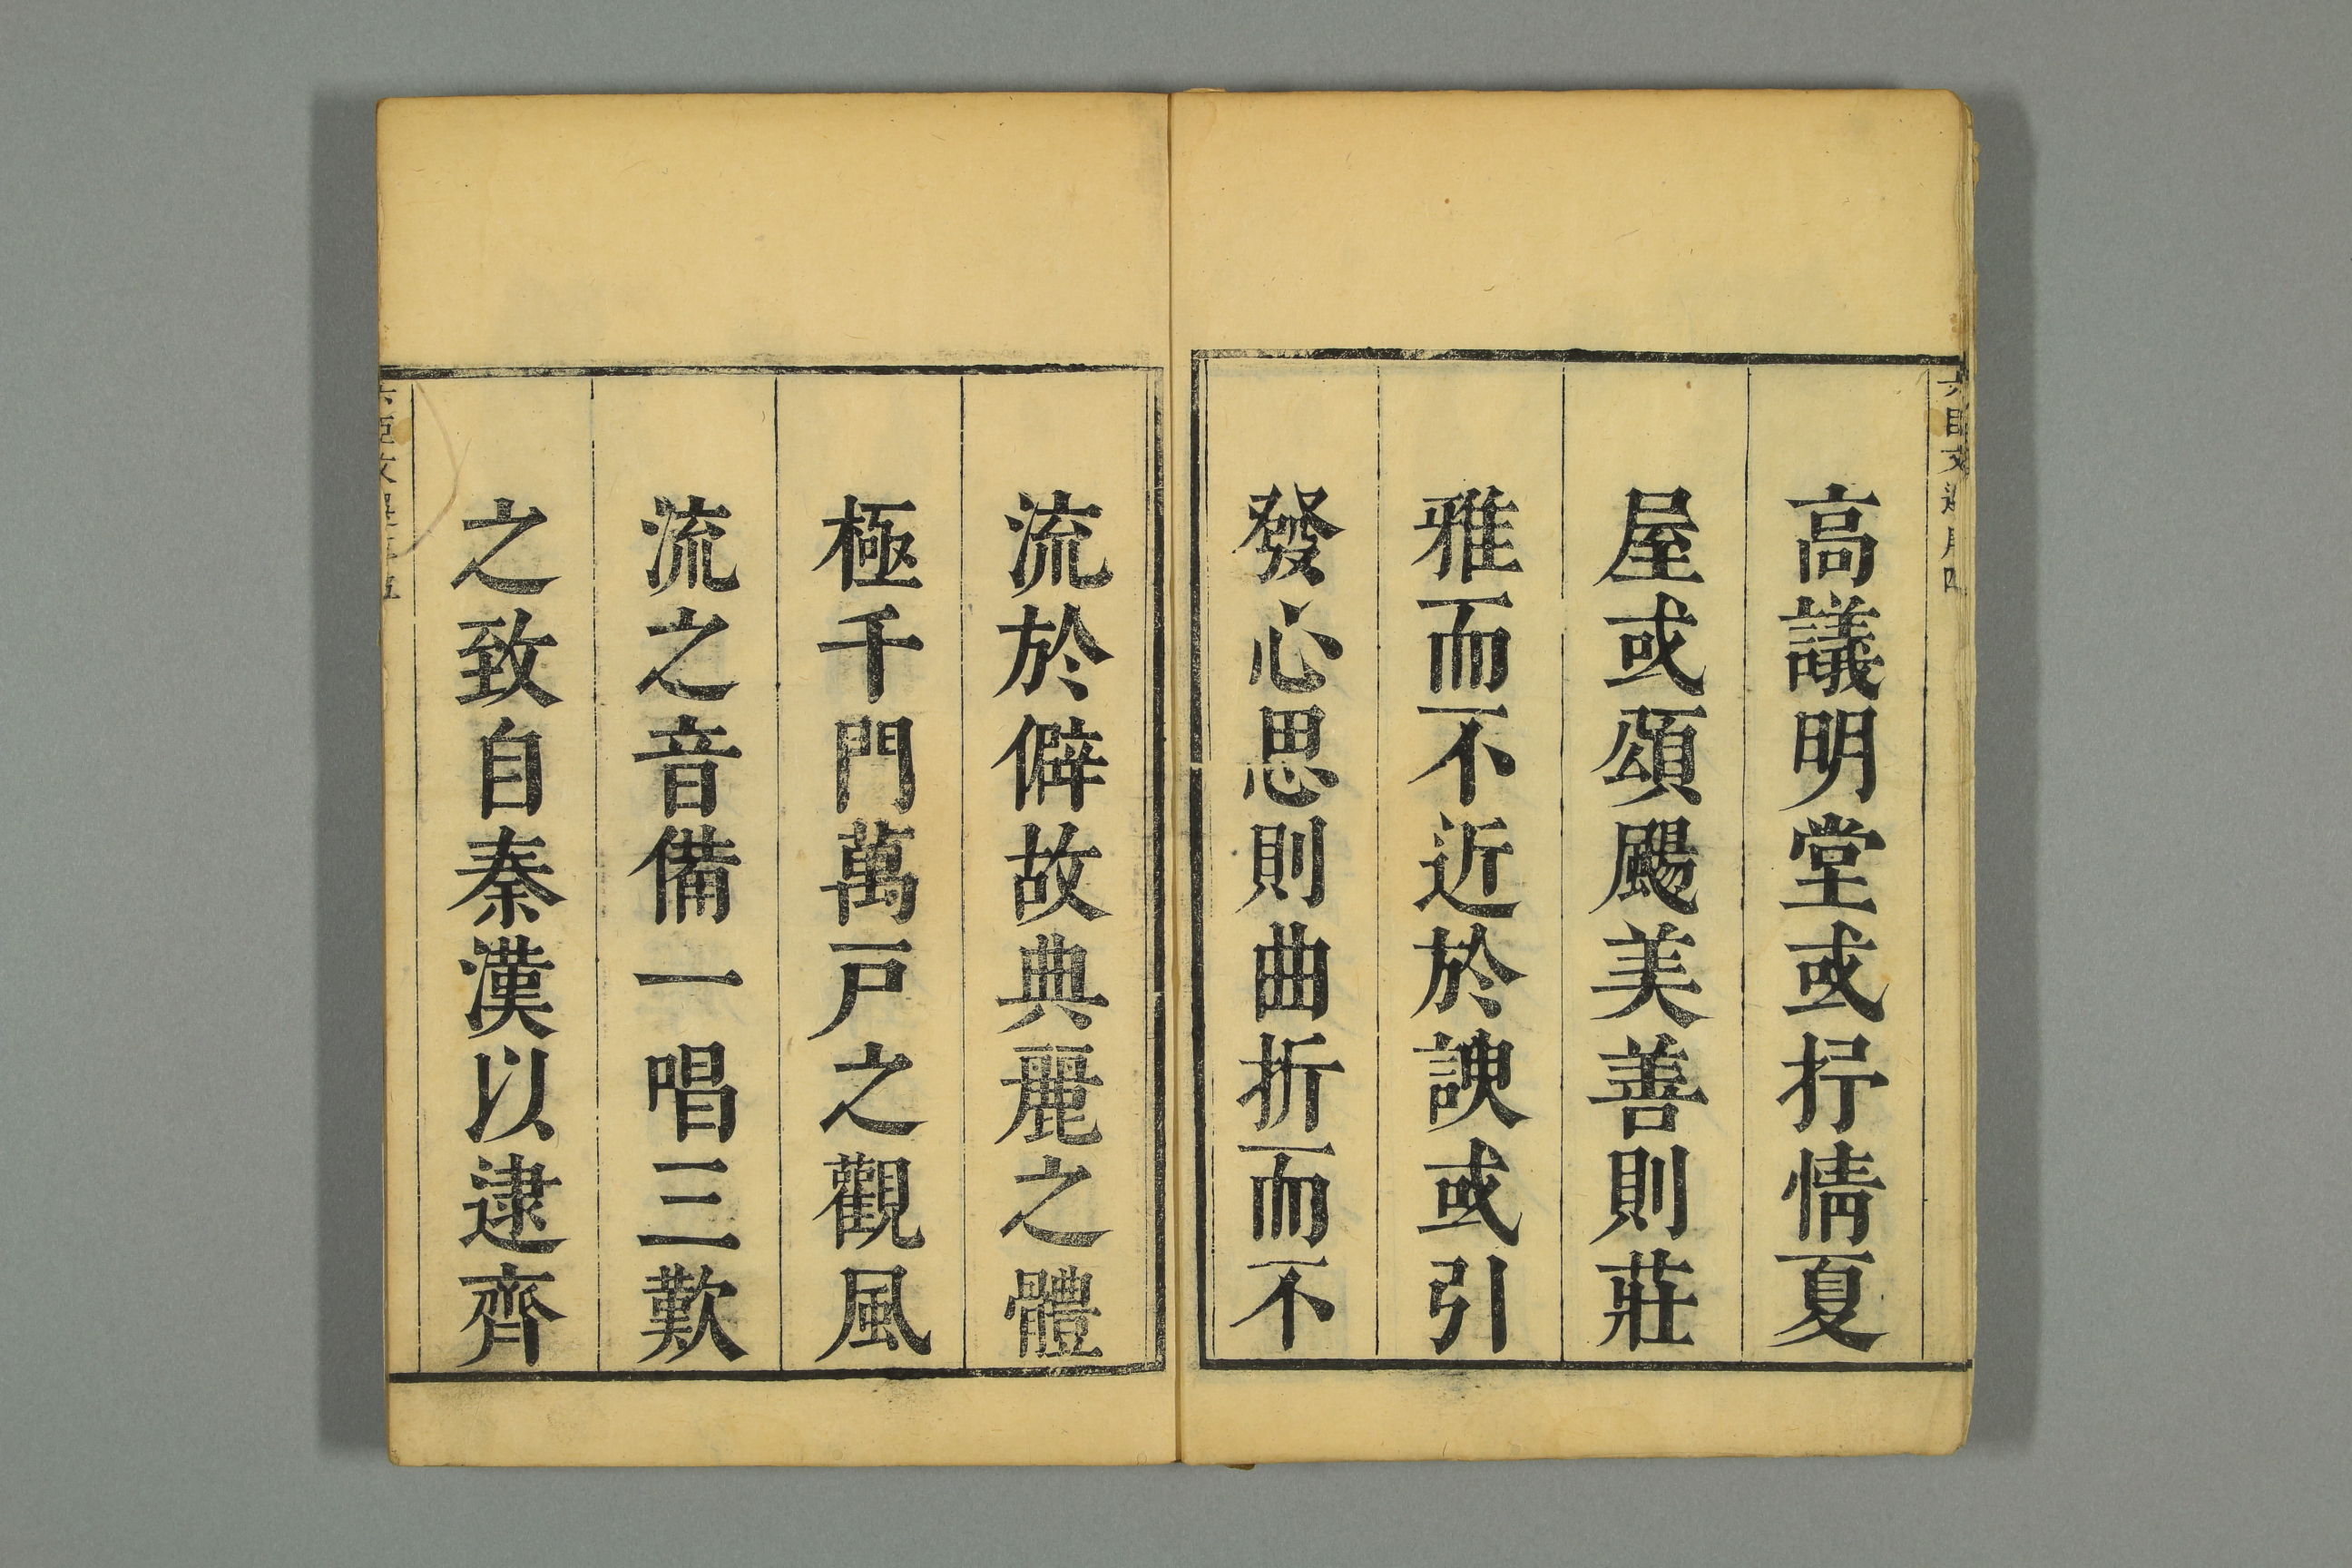 高議明堂或抒情夏
屋或頌颺美善則莊
雅而不近於諛或引
發心思則曲折而不
流於僻故典麗之體
極千門萬戸之觀風
流之音備一唱三歎
之致自秦漢以逮齊